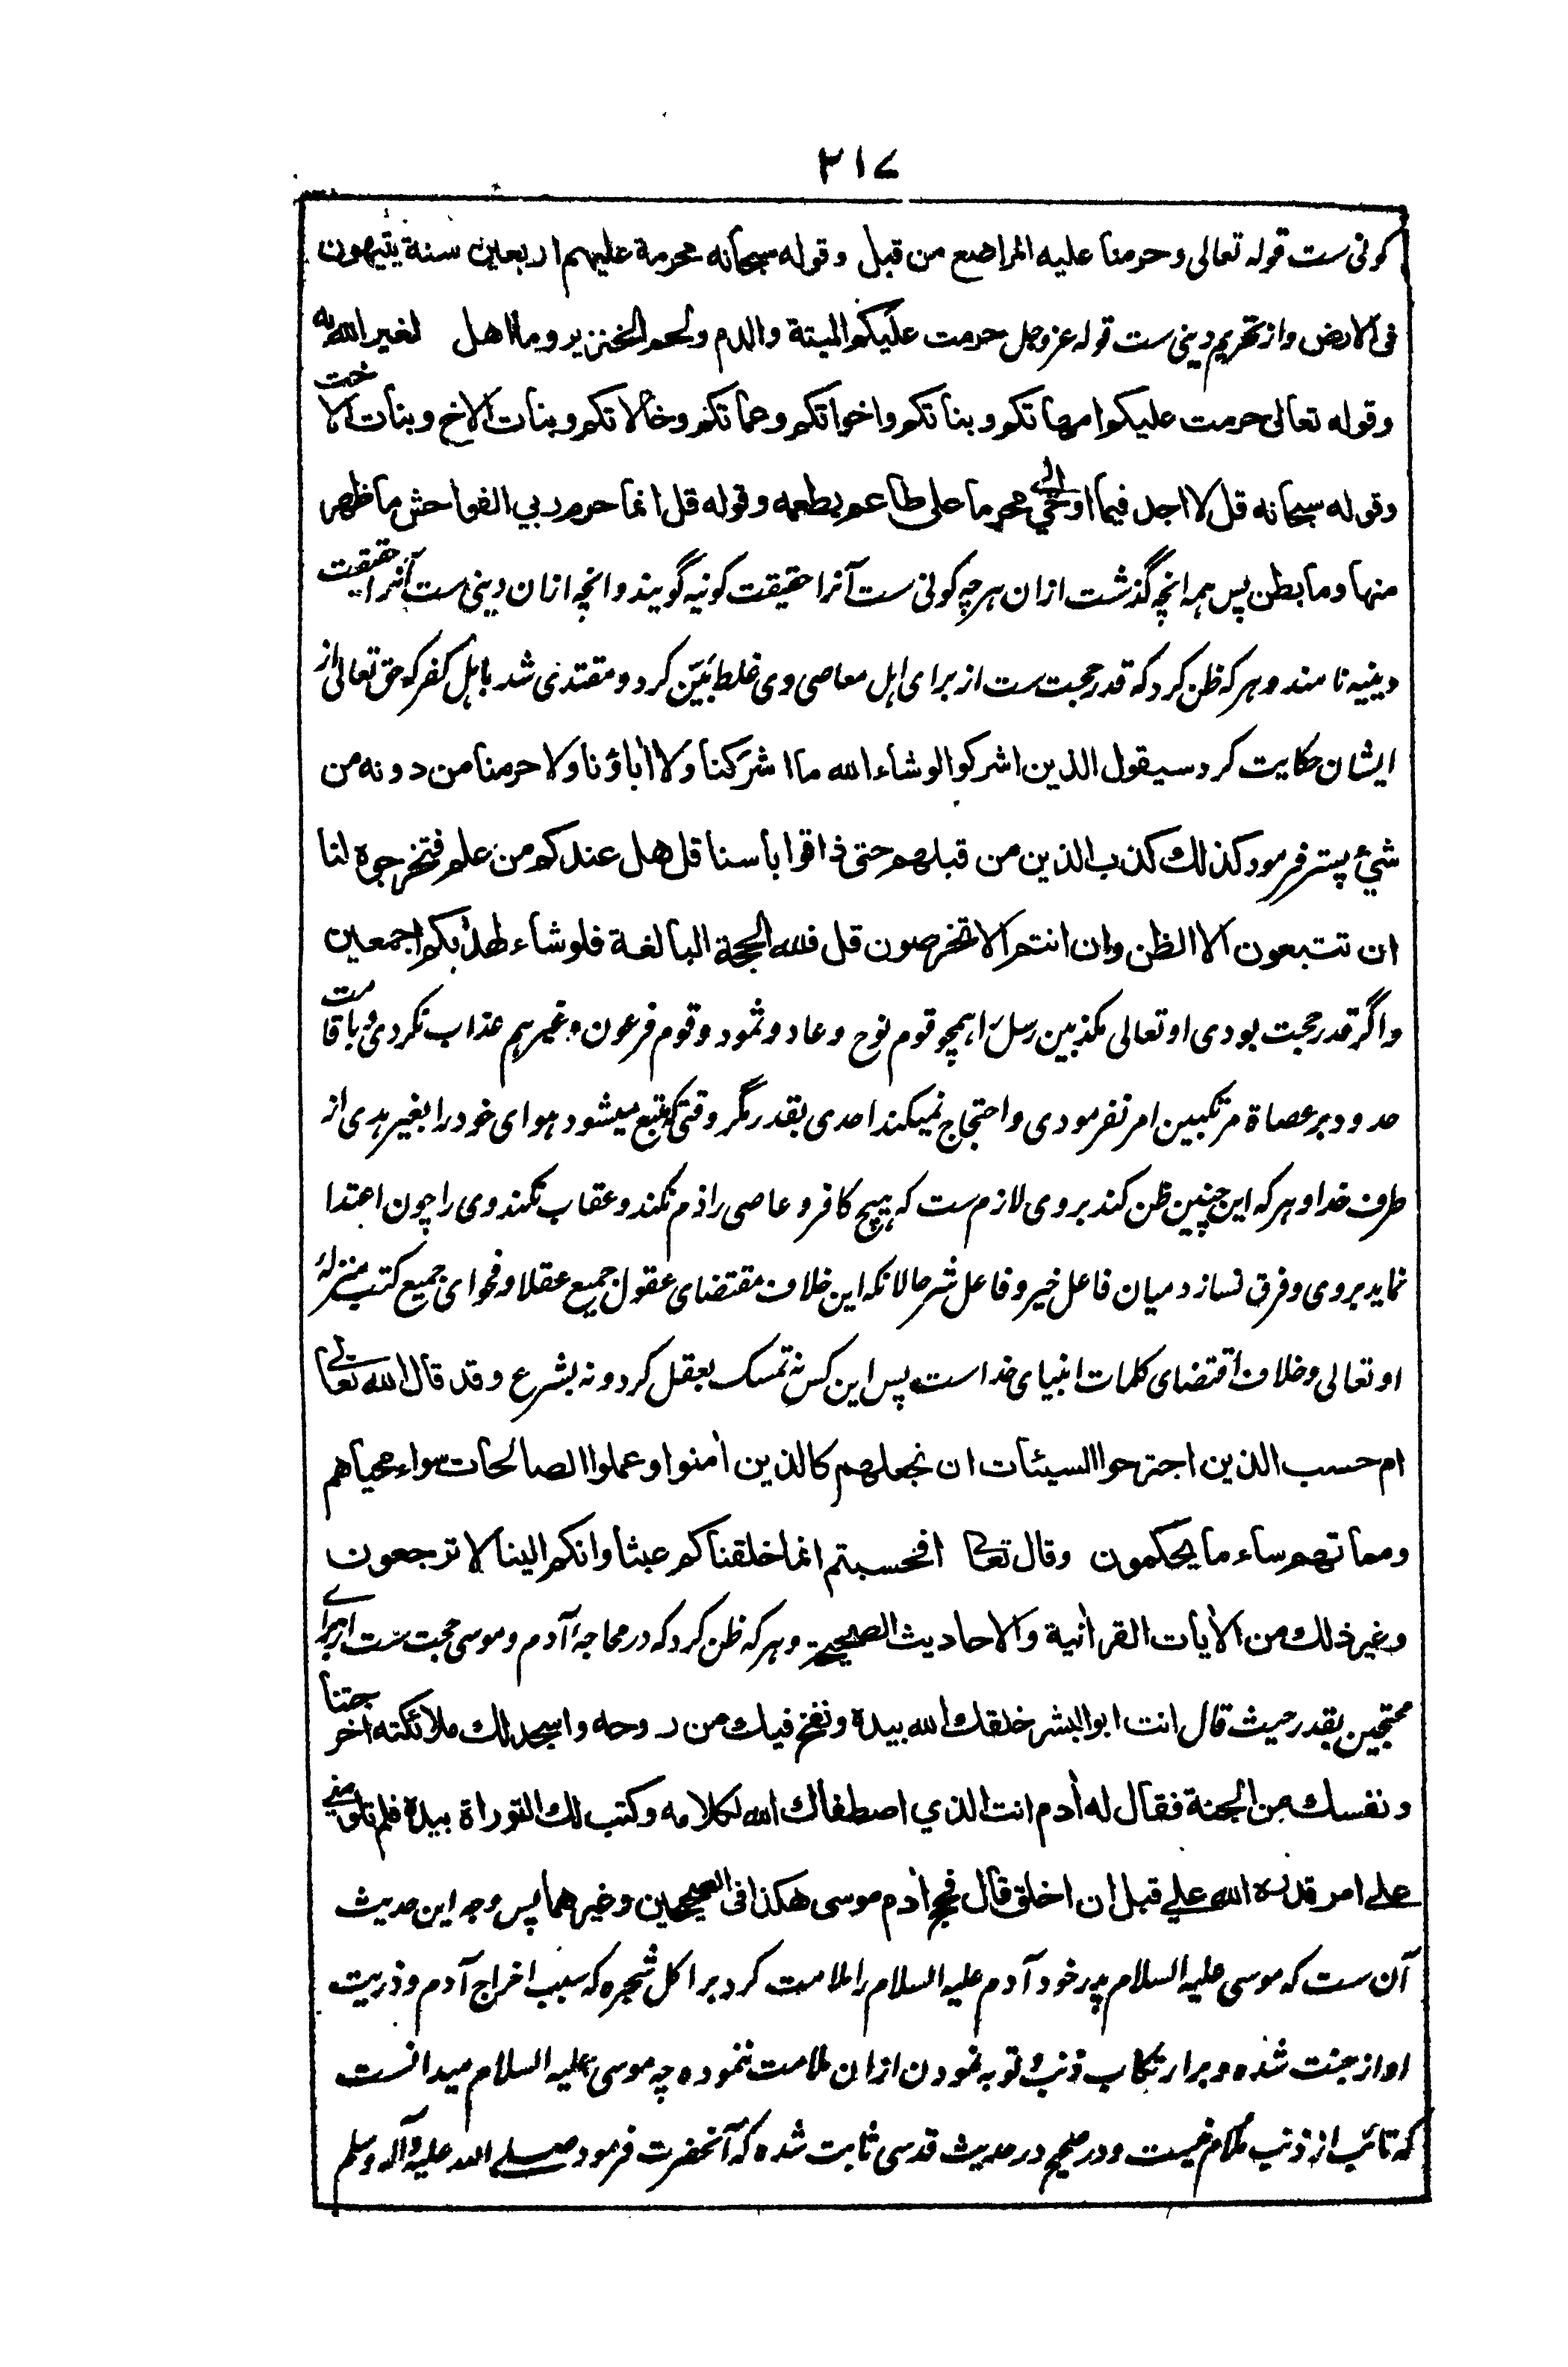 ۳۱۷
کونی ست قوله تعالی وحرمنا علیه المراضع من قبل وقوله سبحانه محرمة علیهم اربعین سنة یتیهون
فی الارض واز تحریم دینی ست قوله عزوجل حرمت علیکم المیتة والدم ولحم الخنزیر وما اهل لغیر الله به
وقوله تعالی حرمت علیکم امهاتکم وبناتکم واخواتکم وعماتکم وخالاتکم وبنات الاخ وبنات الاخت
وقوله سبحانه قل لا اجد فیما اوحی الی محرما علی طاعم یطعمه وقوله قل انما حرم ربی الفواحش ما ظهر
منها وما بطن پس همه انچه گذشت ازان هرچه کونی ست آنرا حقیقت کونیه گویند وانچه ازان دینی ست آنرا حقیقت
دینیه نامند وهرکه ظن کرد که قدر حجت ست از برای اهل معاصی وی غلط بَیّن کرد ومقتدی شد باهل کفر که حق تعالی از
ایشان حکایت کرد سیقول الذین اشرکوا لو شاء الله ما اشرکنا ولا اٰباؤنا ولا حرمنا من دونه من
شیٔ پستر فرمود کذلک کذب الذین من قبلهم حتی ذاقوا باسنا قل هل عندکم من علم فتخرجوه لنا
ان تتبعون الا الظن وان انتم الا تخرصون قل فلله الحجة البالغة فلو شاء لهدٰیکم اجمعین
واگر قدر حجت بودی او تعالی مکذبین رسل را همچو قوم نوح وعاد وثمود وقوم فرعون وغیرهم عذاب نکردی وباقامت
حدود بر عصاة مرتکبین امر نفرمودی واحتجاج نمیکند احدی بقدر مگر وقتی که متبع میشود هوای خود را بغیر هدی از
طرف خدا وهرکه این چنین ظن کند بروی لازم ست که هیچ کافر وعاصی را ذم نکند وعقاب نکند وی را چون اعتدا
نماید بروی وفرق نسازد میان فاعل خیر وفاعل شر حالانکه این خلاف مقتضای عقول جمیع عقلا وفحوای جمیع کتب منزلهٔ
او تعالی وخلاف اقتضای کلمات انبیای خداست پس این کس نه تمسک بعقل کرد ونه بشرع وقد قال الله تعالی
ام حسب الذین اجترحوا السیئات ان نجعلهم کالذین اٰمنوا وعملوا الصالحات سواء محیاهم
ومماتهم ساء ما یحکمون وقال تعالی افحسبتم انما خلقناکم عبثا وانکم الینا لا ترجعون
وغیر ذلک من الاٰیات القراٰنیة والاحادیث الصحیحة وهرکه ظن کرد که در محاجهٔ آدم وموسی حجت ست از برای
محتجین بقدر حیث قال انت ابو البشر خلقک الله بیده ونفخ فیک من روحه واسجد لک ملائکته اخرجتنا
ونفسک من الجنة فقال له اٰدم انت الذی اصطفاک الله لکلامه وکتب لک التوراة بیده فلم تلومنی
علی امر قدره الله علی قبل ان اخلق قال فحج اٰدم موسی هکذا فی الصحیحین وغیرهما پس وجه این حدیث
آن ست که موسی علیه السلام پدر خود آدم علیه السلام را ملامت کرد بر اکل شجره که سبب اخراج آدم وذریت
او از جنت شده وبر ارتکاب ذنب وتوبه نمودن ازان ملامت ننموده چه موسی علیه السلام میدانست
که تائب از ذنب ملام نیست ودر صحیح در حدیث قدسی ثابت شده که آنحضرت فرمود صلی الله علیه وآله وسلم